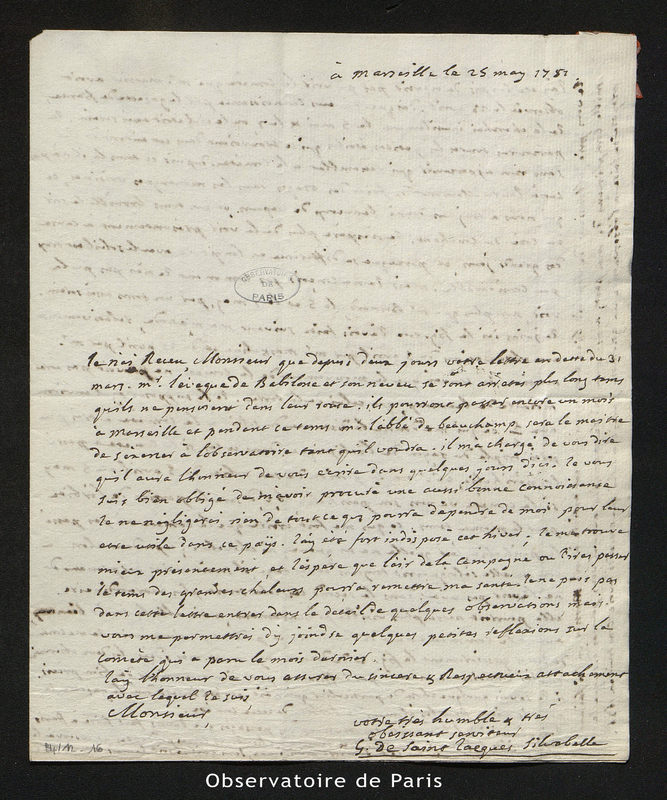 à Marseille le 25 may 1781
OBSERVATOIRE
DE
PARIS
Je n'ai Receu Monsieur que depuis deux jours votre lettre en datte du 31
mars. mr. l'évêque de Babilone et son neveu se sont arrêtés plus long tems
qu'ils ne pensoient dans leur route: ils pourront passer encore un mois
à Marseille et pendant ce tems mr. l'abbé de beauchamp sera le maitre
de s'exercer à l'observatoire tant qu'il voudra. il m'a chargé de vous dire
qu'il aura l'honneur de vous ecrire dans quelques jours d'ici. Je vous
suis bien obligé de m'avoir procuré une aussi bonne connoissance
Je ne negligerai rien de tout ce qui pourra dependre de moi pour leur
etre utile dans ce païs. J'ay eté fort indisposé cet hiver, Je me trouve
mieux présentement et J'espere que l'air de la Campagne ou J'irai passer
le tems des grandes chaleurs pourra remettre ma santé. Je ne puis pas
dans cette lettre entrer dans le detail de quelques observations mais
vous me permettrés d'y joindre quelques petites reflexions sur la
comète qui a paru le mois dernier.
J'ay l'honneur de vous assurer du sincere & Respectueux attachement
avec lequel Je suis
Monsieur
votre très humble & très
obeissant serviteur
G. de Saint Jacques Silvabelle
16
Observatoire de Paris